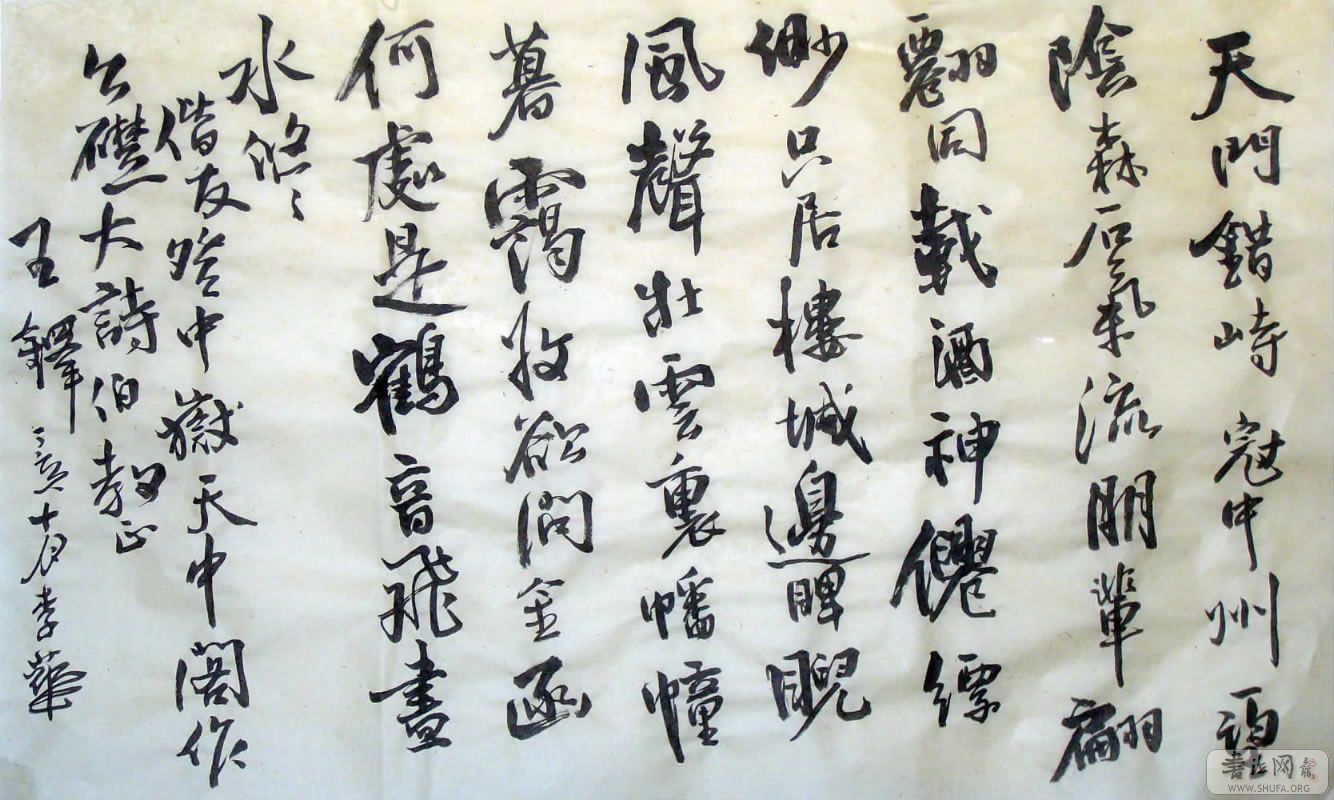 天門錯峙冠中州
陰森石氣流朋輩翩
翾同載酒神僊縹
緲只居樓城邊睥睨
風聲壯雲裏幡幢
暮靄收欲問金函
何處是鶴音飛盡
水悠〻
偕友中嶽天中閣作
公礎大詩伯教正
王鐸 亥十月李華
書法网
WWW.SHUFA.ORG